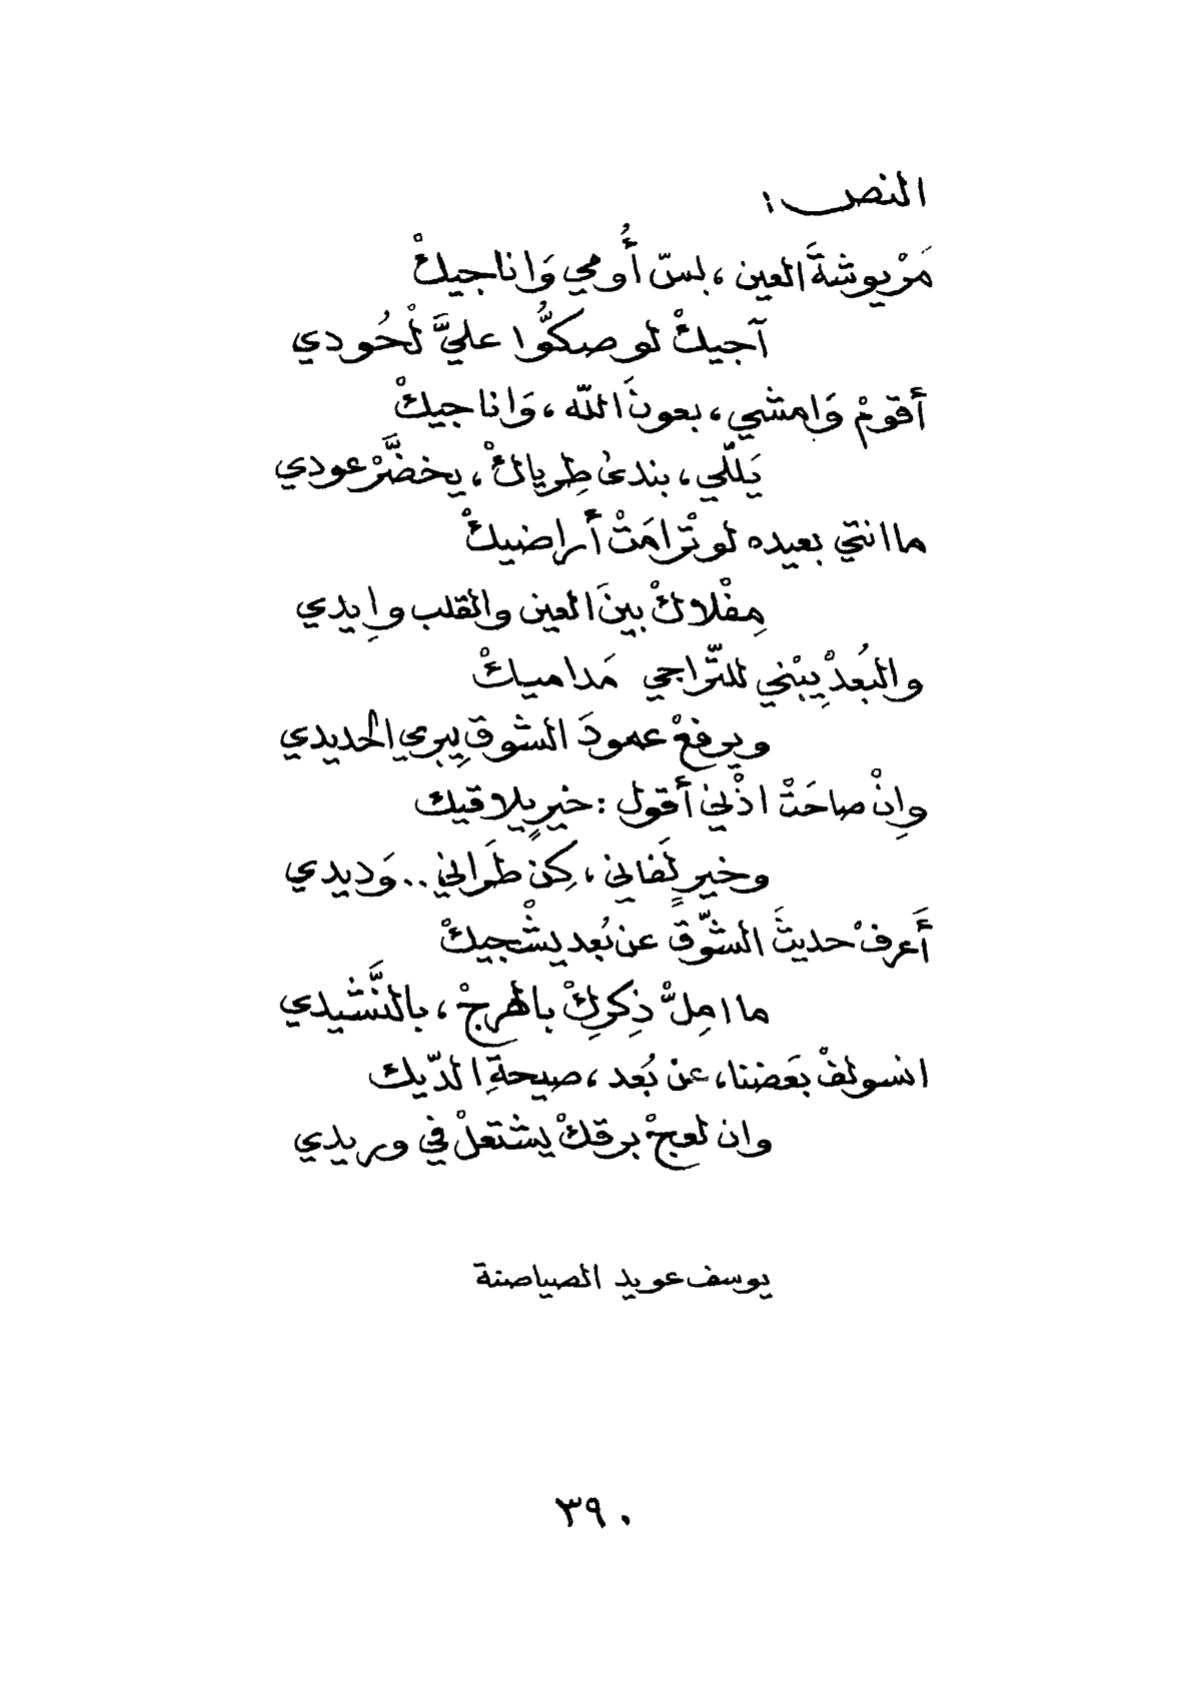 النص :
مَرْيوشةَ العين ، بسّ أُومي وَانا جيكْ
آجيكْ لو صكوُّا عليَّ لْحُودي
أقومْ وَامشي ، بعونَ الله ، وَانا جيكْ
يَللّي ، بندىٰ طِرياكْ ، يخضَّرْ عودي
ما انتي بعيده لو تْرامَتْ أراضيكْ
مِفْلاكْ بينَ العين والقلب وإيدي
والبُعدْ يِبْني للتّراجي مَدامـيكْ
ويرفعْ عمودَ الشوق يِبري الحديدي
وِانْ صاحَتْ اذْني أقول : خيرٍ يلاقيك
وخيرٍ لَفاني ، كِن طَراني .. وَديدي
أَعرفْ حديثَ الشّوق عن بُعد يشْجيكْ
ما امِلّْ ذِكرِكْ بالهرجْ ، بالنَّشيدي
انسولفْ بَعضنا ، عن بُعد ، صيحةِ الدّيك
وان لعجْ برقكْ يشتعلْ في وريدي
يوسف عويد الصياصنة
٣٩٠